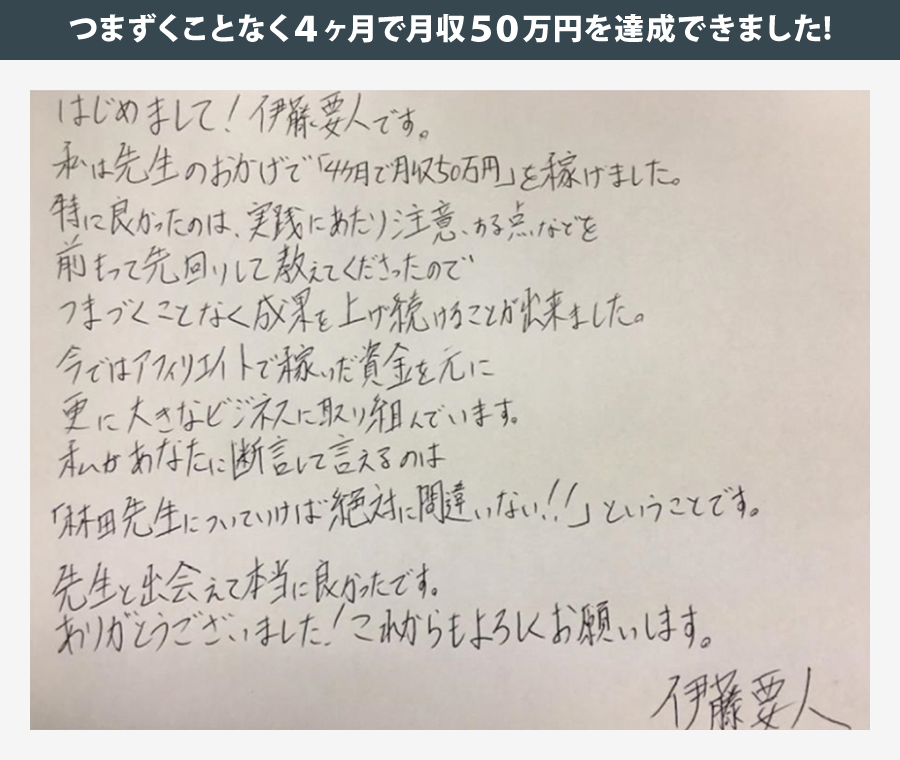 つまずくことなく４ヶ月で月収５０万円を達成できました!
はじめまして！伊藤要人です。
私は先生のおかげで「4ヶ月で月収50万円」を稼げました。
特に良かったのは、実践にあたり注意、ある点などを
前もって先回りして教えてくださったので
つまづくことなく成果を上げ続けることが出来ました。
今ではアフィリエイトで稼いだ資金を元に
更に大きなビジネスに取り組んでいます。
私があなたに断言して言えるのは
「林田先生についていけば絶対に間違いない!!」ということです。
先生と出会えて本当に良かったです。
ありがとうございました！これからもよろしくお願いします。
伊藤要人